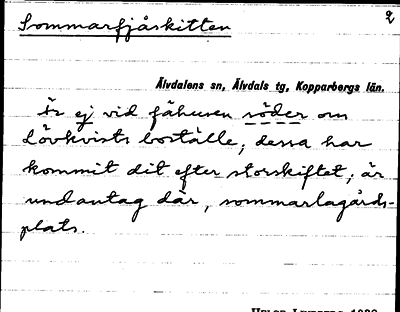 Sommarfjåskitten
2
Älvdalens sn, Älvdals tg, Kopparbergs län.
Är ej vid fähusen söder om
Lövkvists boställe; dessa har
kommit dit efter storskiftet; är
undantag där, sommarlagårds-
plats.